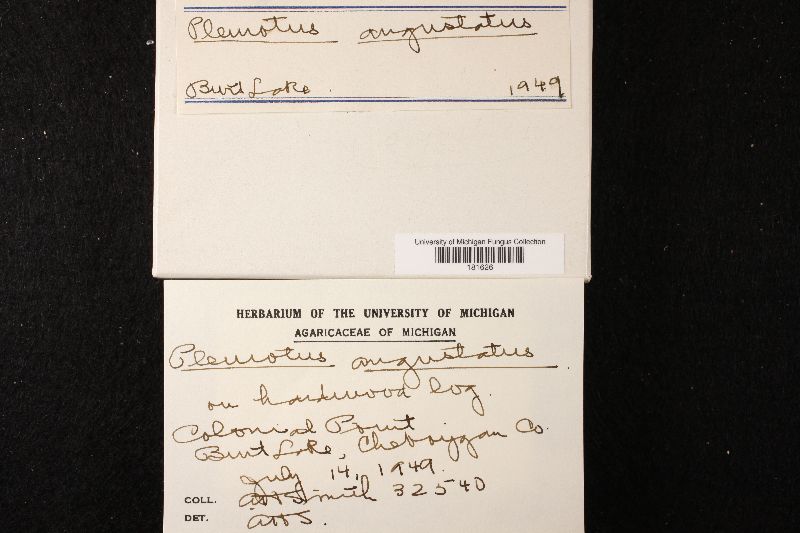 Pleurotus angustatus
Burt Lake 1949
University of Michigan Fungus Collection
181626
HERBARIUM OF THE UNIVERSITY OF MICHIGAN
AGARICACEAE OF MICHIGAN
Pleurotus angustatus
on hardwood log.
Colonial Point
Burt Lake, Cheboygan Co.
July 14, 1949.
COLL. AH Smith 32540
DET. AHS.